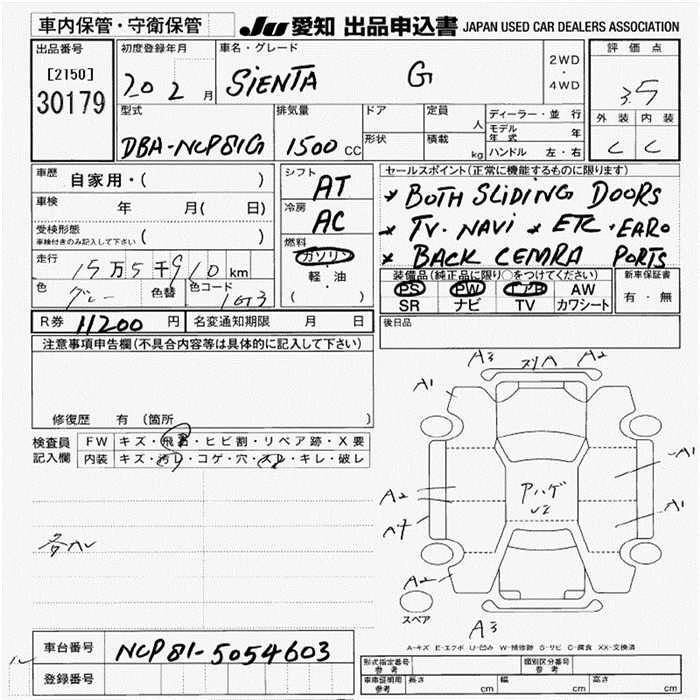 車内保管・守衛保管
JU 愛知 出品申込書 JAPAN USED CAR DEALERS ASSOCIATION
出品番号 初度登録年月 車名・グレード 2WD ・ 4WD 評価点
[2150]
30179 20 2 月 SIENTA G 3.5
型式 排気量 ドア 定員 人 ディーラー・並行 外装 内装
DBA-NCP81G 1500 CC 形状 積載 kg モデル年式 年 C C
ハンドル 左・右
車歴 自家用・( ) シフト AT セールスポイント(正常に機能するものに限ります)
車検 年 月( 日) 冷房 AC * BOTH SLIDING DOORS
受検形態 ( ) * TV・NAVI * ETC・EARO
車検付きのみ記入して下さい 燃料 ガソリン * BACK CEMRA PORTS
走行 15万5千910km 軽・油 装備品(純正品に限り○をつけてください) 新車保証書
色 グレー 色替 色コード 1G3 ( ) PS PW エアB AW 有・無
SR ナビ TV カワシート
R券 11200 円 名変通知期限 月 日 後日品
注意事項申告欄(不具合内容等は具体的に記入して下さい)
修復歴 有 (箇所 )
検査員 FW キズ・飛石・ヒビ割・リペア跡・X要
記入欄 内装 キズ・汚レ・コゲ・穴・スレ・キレ・破レ
A3 スリA A2
A1
A1
A2 アハゲ
U2
A1
A2
A3
スペア
A-キズ E-エクボ U-凹み W-補修跡 S-サビ C-腐食 XX-交換済
車台番号 NCP81-5054603
登録番号
形式指定番号 参考 類別区分番号 参考
車庫証明用 参考 長さ cm 幅 cm 高さ cm